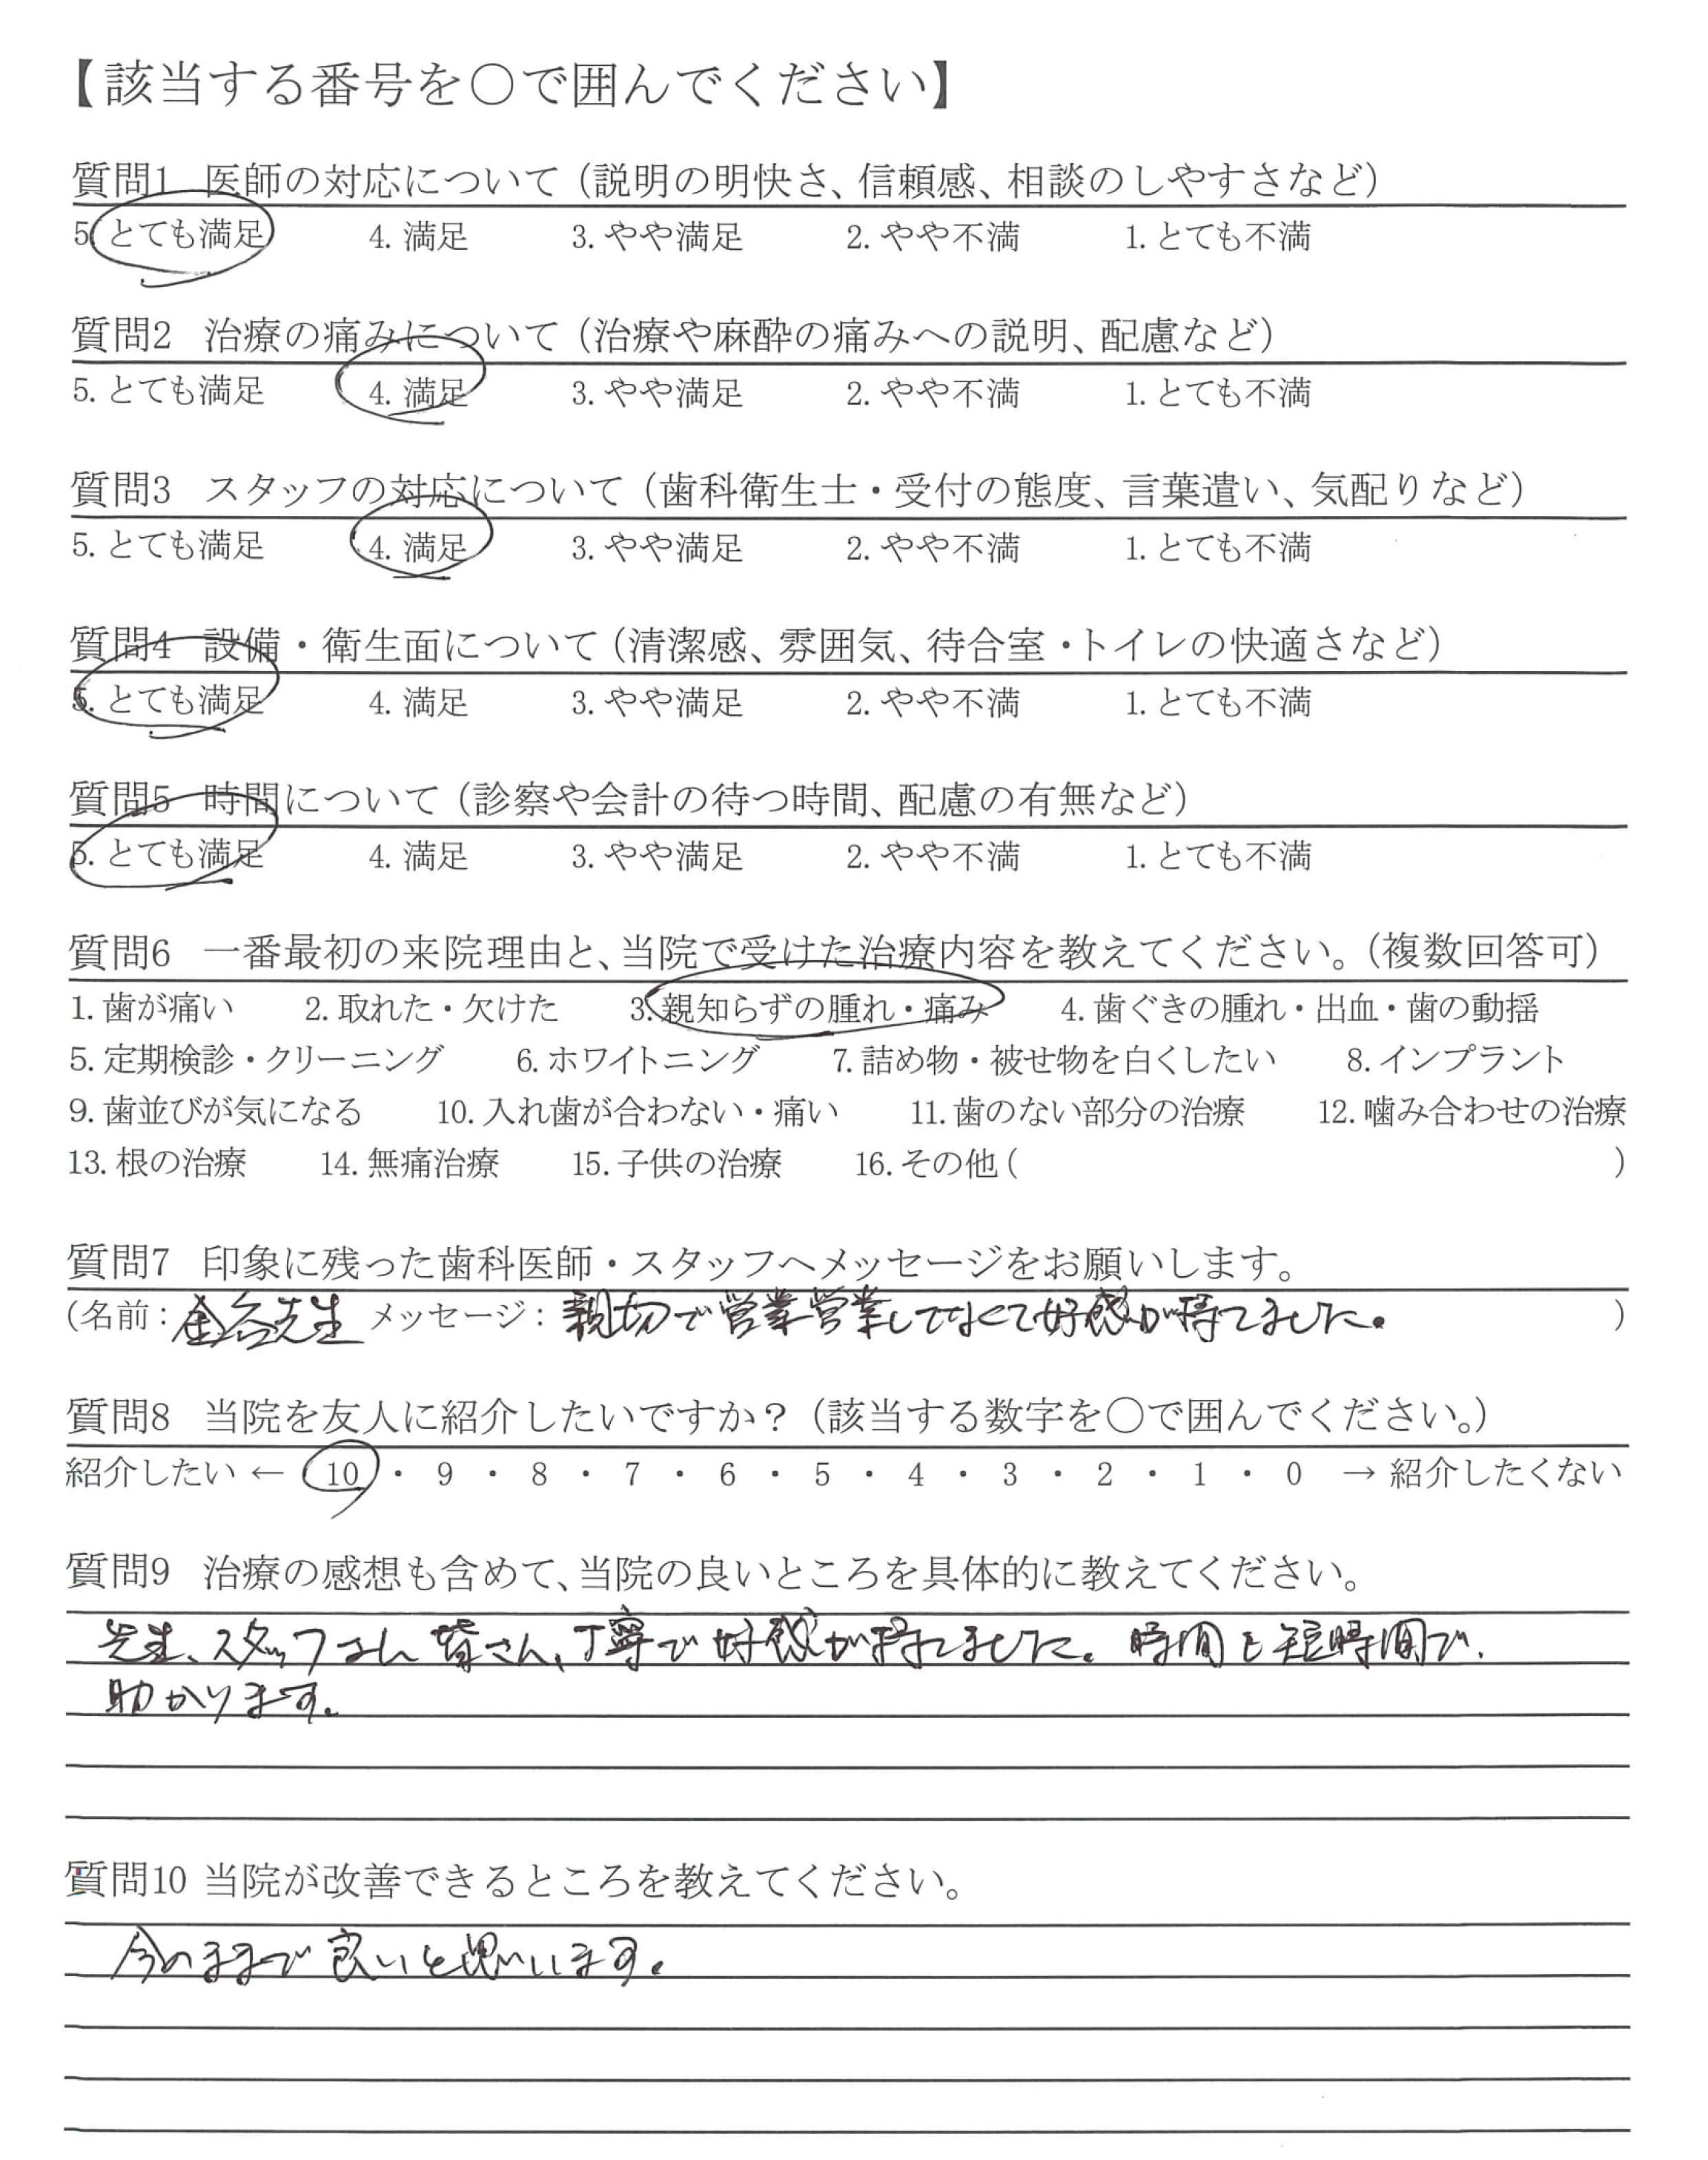 【該当する番号を○で囲んでください】
質問1 医師の対応について（説明の明快さ、信頼感、相談のしやすさなど）
5.とても満足 4.満足 3.やや満足 2.やや不満 1.とても不満
質問2 治療の痛みについて（治療や麻酔の痛みへの説明、配慮など）
5.とても満足 4.満足 3.やや満足 2.やや不満 1.とても不満
質問3 スタッフの対応について（歯科衛生士・受付の態度、言葉遣い、気配りなど）
5.とても満足 4.満足 3.やや満足 2.やや不満 1.とても不満
質問4 設備・衛生面について（清潔感、雰囲気、待合室・トイレの快適さなど）
5.とても満足 4.満足 3.やや満足 2.やや不満 1.とても不満
質問5 時間について（診察や会計の待つ時間、配慮の有無など）
5.とても満足 4.満足 3.やや満足 2.やや不満 1.とても不満
質問6 一番最初の来院理由と、当院で受けた治療内容を教えてください。（複数回答可）
1.歯が痛い 2.取れた・欠けた 3.親知らずの腫れ・痛み 4.歯ぐきの腫れ・出血・歯の動揺
5.定期検診・クリーニング 6.ホワイトニング 7.詰め物・被せ物を白くしたい 8.インプラント
9.歯並びが気になる 10.入れ歯が合わない・痛い 11.歯のない部分の治療 12.噛み合わせの治療
13.根の治療 14.無痛治療 15.子供の治療 16.その他( )
質問7 印象に残った歯科医師・スタッフへメッセージをお願いします。
(名前：金谷先生 メッセージ：親切で営業営業してなくて好感が持てました。 )
質問8 当院を友人に紹介したいですか？（該当する数字を○で囲んでください。）
紹介したい ← 10 ・ 9 ・ 8 ・ 7 ・ 6 ・ 5 ・ 4 ・ 3 ・ 2 ・ 1 ・ 0 → 紹介したくない
質問9 治療の感想も含めて、当院の良いところを具体的に教えてください。
先生、スタッフさん皆さん、丁寧で好感が持てました。時間も短時間で、
助かります。
質問10 当院が改善できるところを教えてください。
今のままで良いと思います。